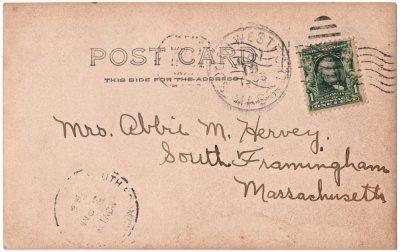 POST CARD
THIS SIDE FOR THE ADDRESS.
WEST
MASS
Mrs. Abbie M. Hervey.
South Framingham
Massachusetts